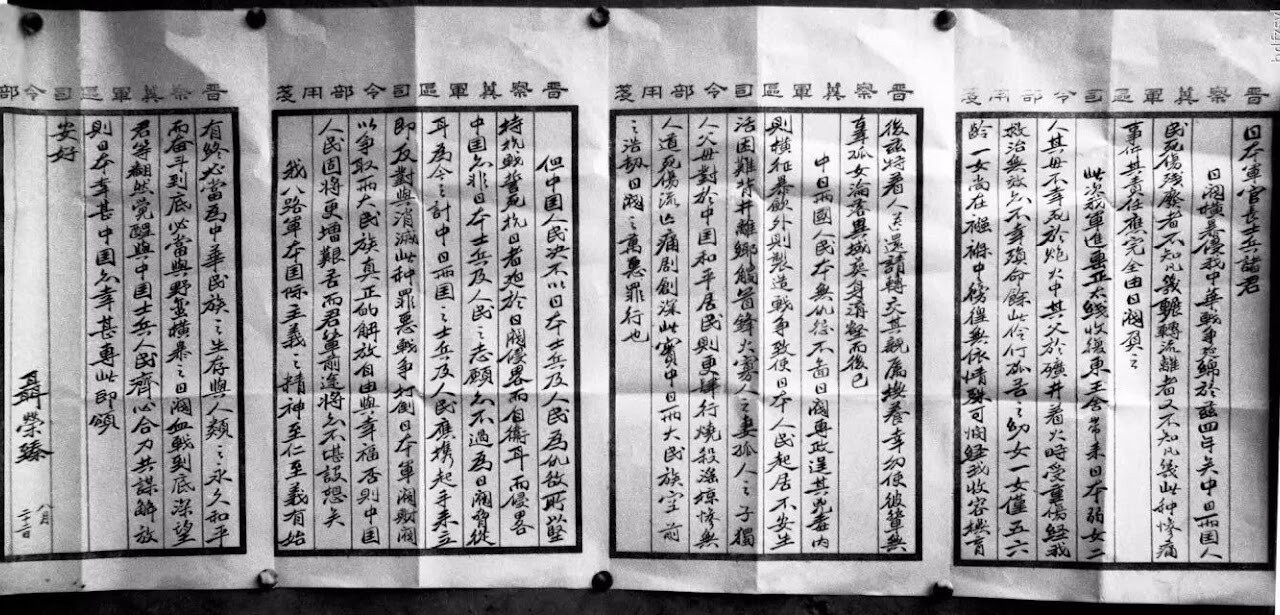 晋察冀軍區司令部用箋
日本軍官長士兵諸君
日閥橫暴侵我中華戰争延綿於茲四年矣中日兩国人
民死傷殘廢者不知凡幾輾轉流離者又不知凡幾此种慘痛
事件其責任應完全由日閥負之
此次我軍進擊正太綫收復東王舍帶来日本弱女二
人其母不幸死於炮火中其父於礦井着火時受重傷經我
救治無效亦不幸殞命餘此伶仃孤苦之幼女一女僅五六
齡一女尚在襁褓中徬徨無依情殊可憫經我收容撫育
晋察冀軍區司令部用箋
後茲特着人送還請轉交其親屬撫養幸勿使彼輩無
辜孤女淪落異域葬身溝壑而後已
中日兩國人民本無仇怨不圖日閥專政逞其兇毒内
則橫征暴歛外則製造戰争致使日本人民起居不安生
活困難背井離鄉觸冒鋒火寡人之妻孤人之子獨
人父母對於中国和平居民則更肆行燒殺淫掠慘無
人道死傷流亡痛劇創深此實中日兩大民族空前
之浩劫日閥之萬惡罪行也
晋察冀軍區司令部用箋
但中国人民決不以日本士兵及人民為仇敵所以堅
持抗戰誓死抗日者迫於日閥侵畧而自衛耳而侵畧
中国亦非日本士兵及人民之志願亦不過為日閥脅從
耳為今之計中日両国之士兵及人民應携起手来立
即反對與消滅此种罪惡戰争打倒日本軍閥財閥
以争取両大民族真正的解放自由與幸福否則中国
人民固將更增艱苦而君輩前途將亦不堪設想矣
我八路軍本国际主義之精神至仁至義有始
晋察冀軍區司令部
有終必當為中華民族之生存與人類之永久和平
而奮斗到底必當與野蛮橫暴之日閥血戰到底深望
君等翻然覺醒與中国士兵人民齊心合力共謀解放
則日本幸甚中国亦幸甚專此即頌
安好
聶榮臻
八月
二十二日